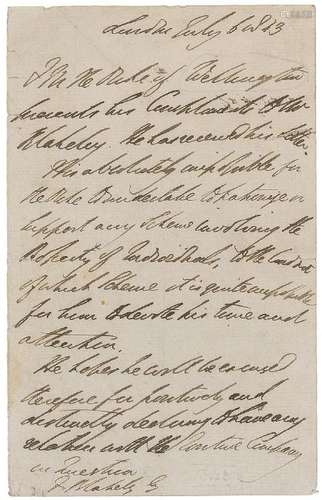 London July 6 1843
F M the Duke of Wellington
presents his Compliments to Mr
Blakeley. He has received his letter.
It is absolutely impossible for
the Duke to undertake to patronise or
support any Scheme involving the
Property of Individuals, to the Conduct
of which Scheme it is quite impossible
for him to devote his time and
attention.
He hopes he will be excused
therefore for positively and
distinctly declining to have any
relation with the Company
in question
Blakeley